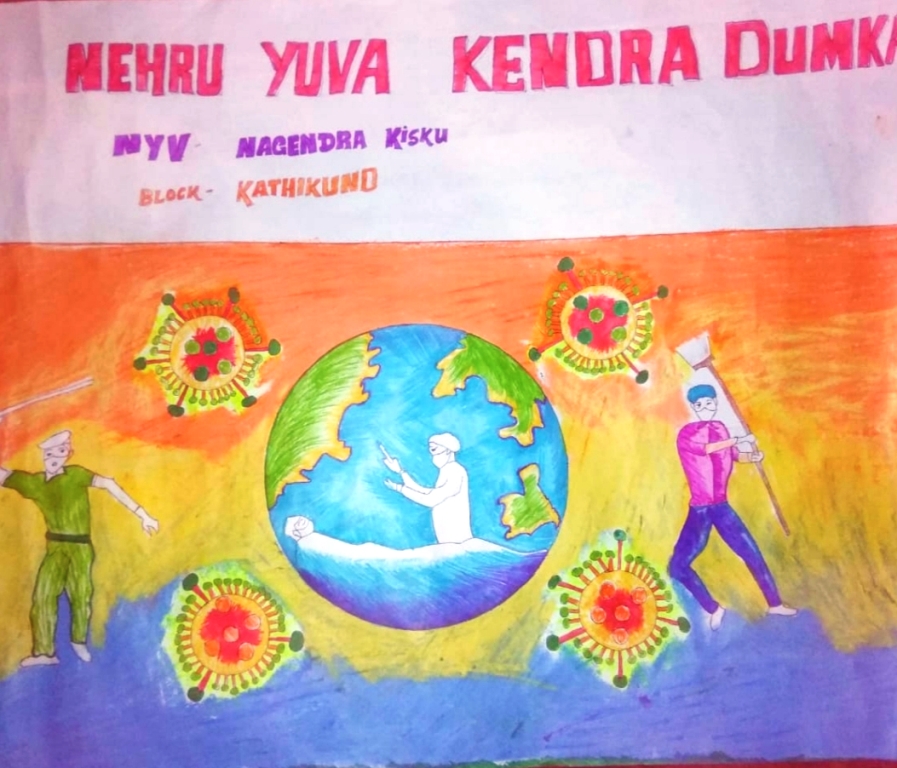 NEHRU YUVA KENDRA DUMKA
NYV- NAGENDRA KiSKU
BLOCK- KATHIKUND